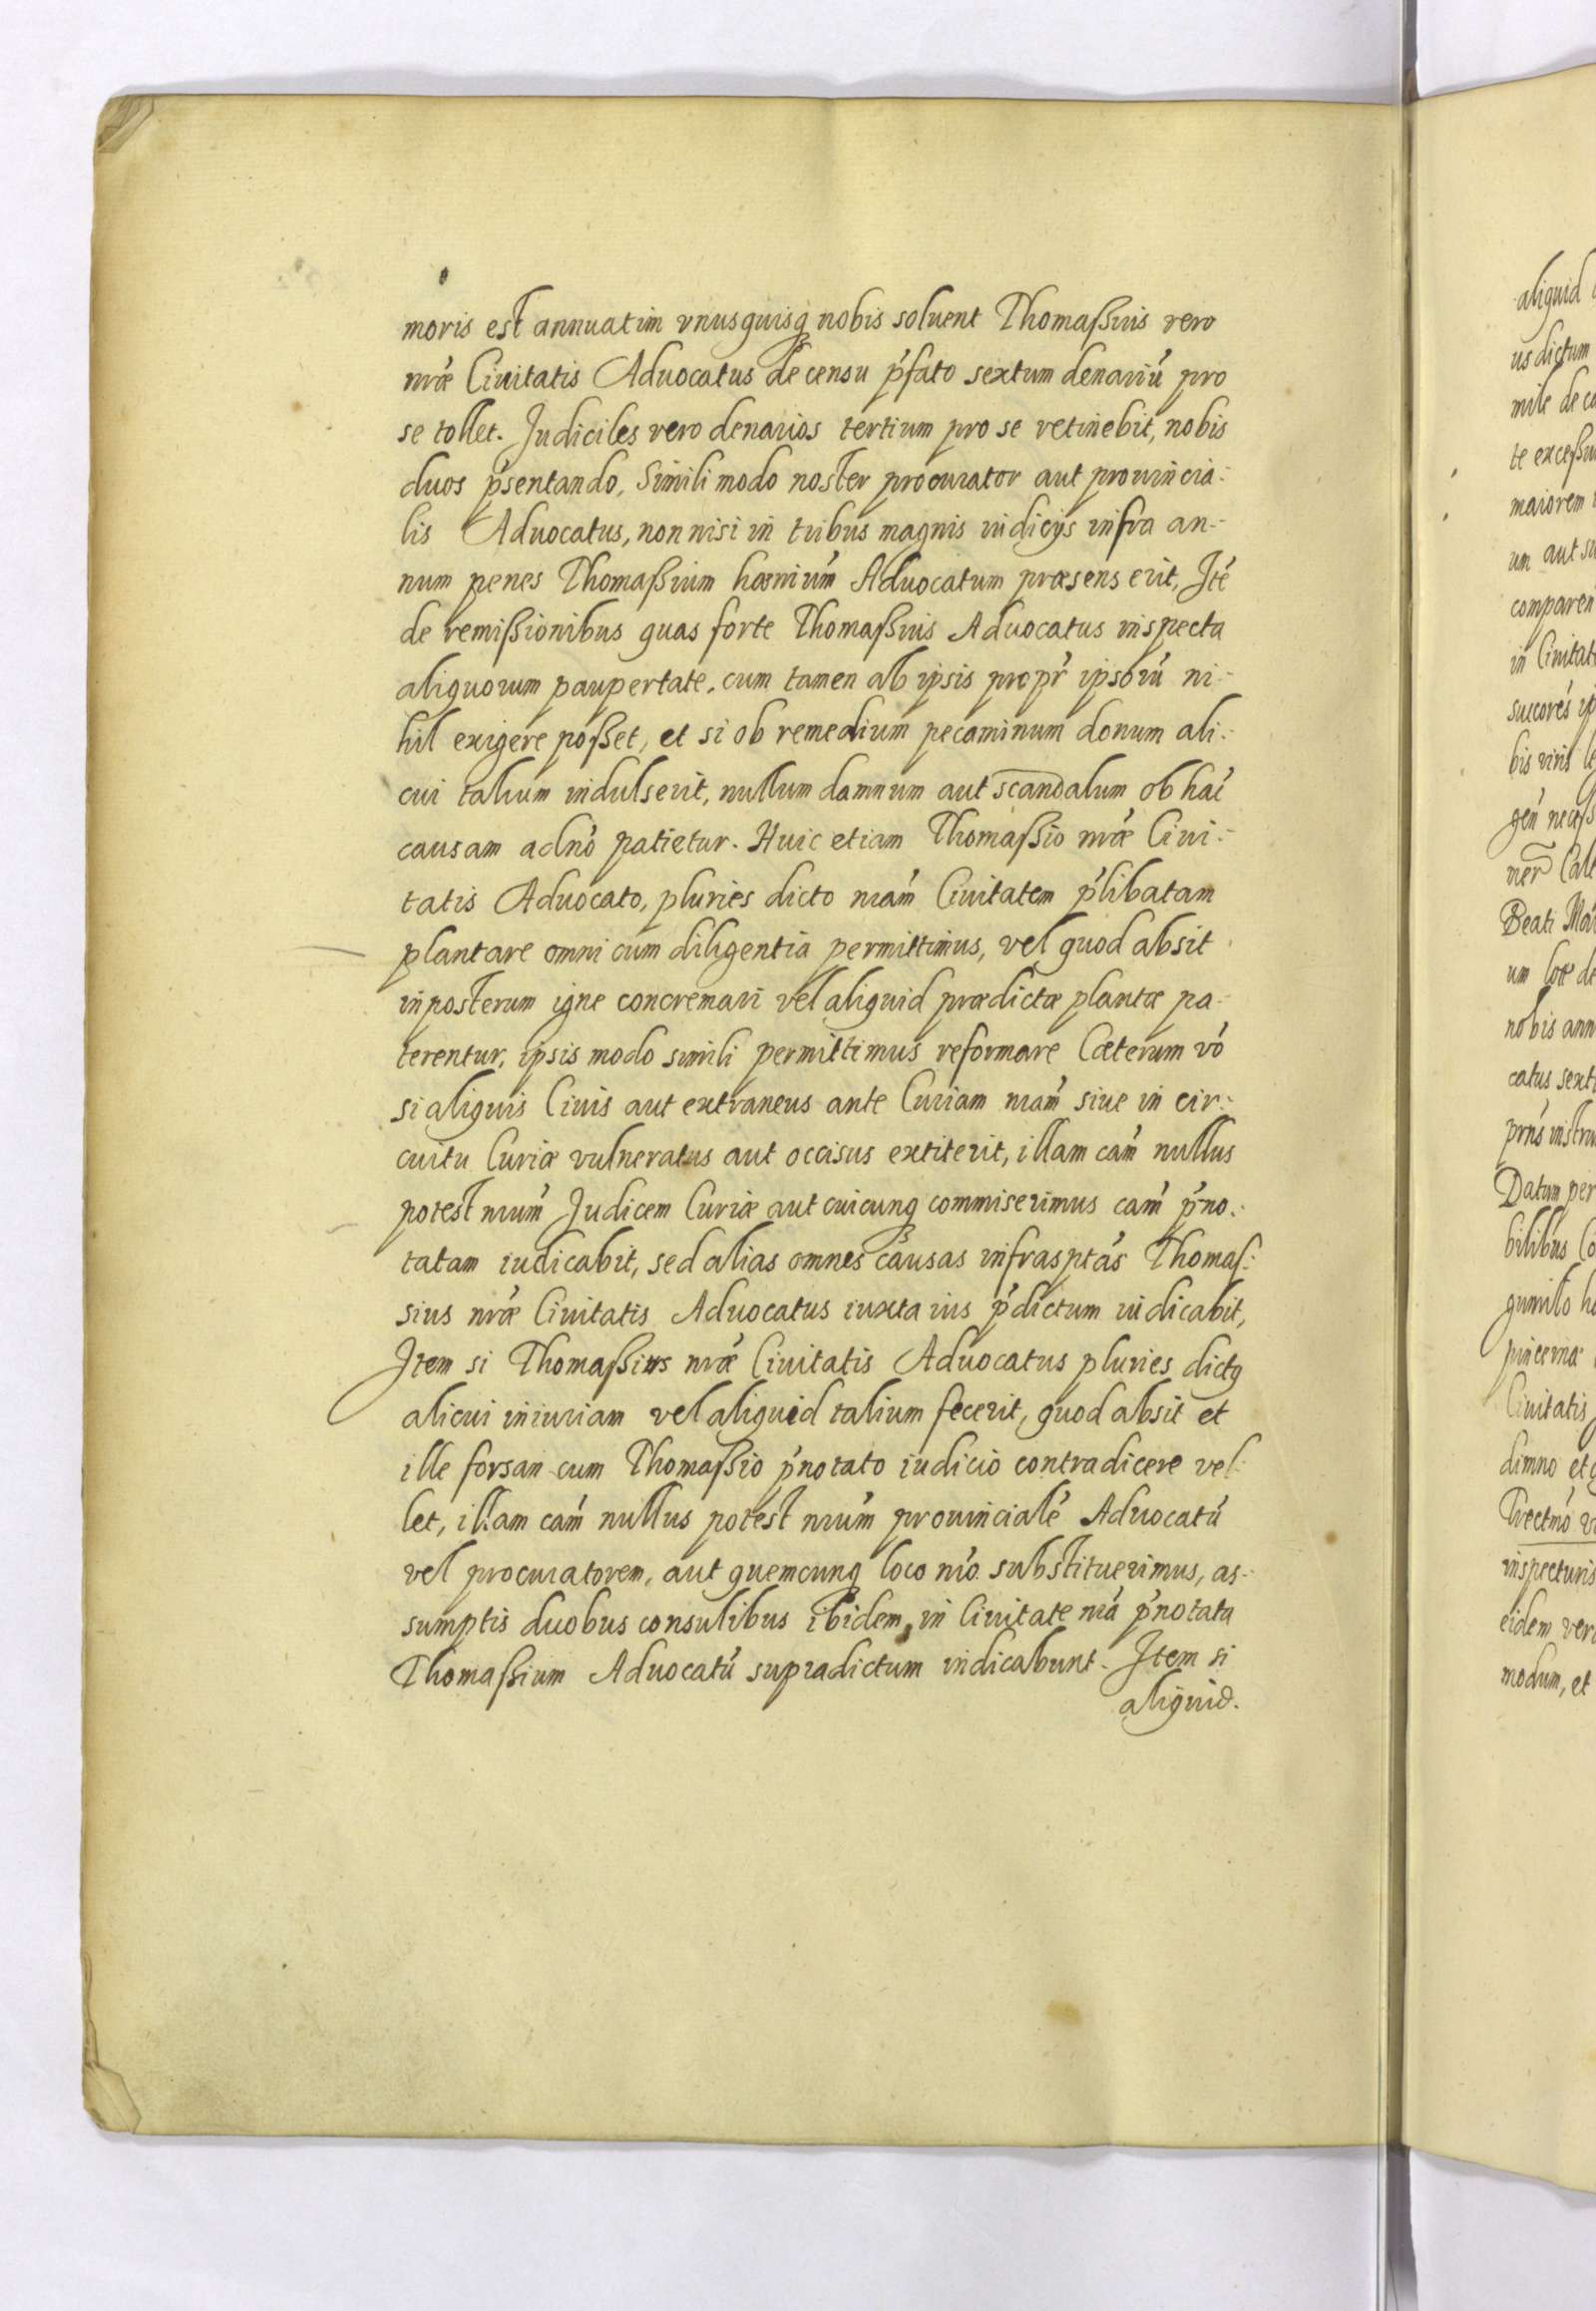 moris est annuatim vnusquisq nobis soluent Thomaßius vero
nræ Ciuitatis Aduocatus de censu p'fato sextum denariú pro
se tollet. Judiciles vero denarios tertium pro se retinebit, nobis
duos p'sentando, Simili modo noster procurator aut prouincia-
lis Aduocatus, non nisi in tribus magnis iudicÿs infra an-
num penes Thomaßium hærniúm Aduocatum præsens erit, Jté
de remißionibus quas forte Thomaßius Aduocatus inspecta
aliquorum paupertate, cum tamen ab ipsis propr' ipsorú ni-
hil exigere poßet, et si ob remedium pecaminum donum ali-
cui talium indulserit, nullum damnum aut scandalum ob hac
causam adnó patietur. Huic etiam Thomaßio nræ Ciui-
tatis Aduocato, pluries dicto nram Ciuitatem p'libatam
plantare omni cum diligentia permittimus, vel quod absit
inposterum igne concremari vel aliquid prædictæ plantæ pa-
terentur, ipsis modo simili permittimus reformare Cæterum vó
si aliquis Ciuis aut extraneus ante Curiam nram siue in cir-
cuitu Curiæ vulneratus aut occisus extiterit, illam cam nullus
potest nrum Judicem Curiæ aut cuicunq commiserimus cam p'no-
tatam iudicabit, sed alias omnes causas infrasptas Thomas-
sius nræ Ciuitatis Aduocatus iuxta ius p'dictum iudicabit,
Jtem si Thomaßius nræ Ciuitatis Aduocatus pluries dictq
alicui iniuriam vel aliquid talium fecerit, quod absit et
ille forsan cum Thomaßio p'notato iudicio contradicere vel-
let, illam cam nullus potest nrum prouincialé Aduocatú
vel procuratorem, aut quemcunq loco nro substituerimus, as-
sumptis duobus consulibus ibidem, in Ciuitate nra p'notata
Thomaßium Aduocatú supradictum iudicabunt. Jtem si
aliquid.
aliquid
us dictum
mile de ca
te exceßiu
maiorem
um aut su
comparen
in Ciuitat
succores ip
bis viris le
gen neceß
ner Cal
Beati Mar
um loæ de
nobis ann
catus sext
prns instru
Datum per
bilibus Co
guinilo he
pincernæ
Ciuitatis
dimno et
inspecturis
eidem ver
modum, et